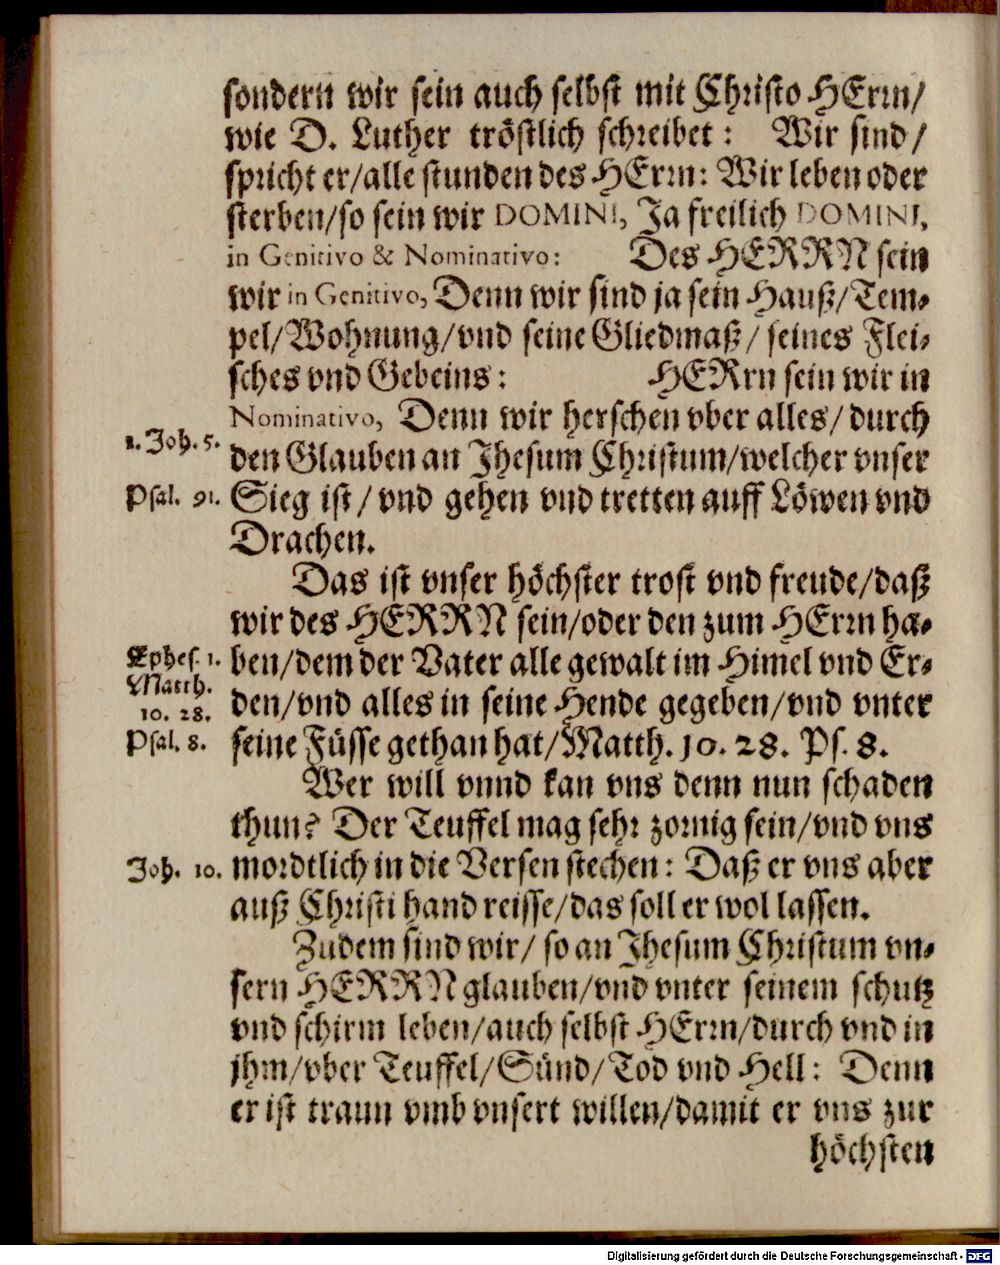 sondern wir sein auch selbst mit Christo HErrn/
wie D. Luther tröstlich schreibet: Wir sind/
spricht er/alle stunden des HErrn: Wir leben oder
sterben/so sein wir DOMINI, Ja freilich DOMINI,
in Genitivo & Nominativo: Des HERRN sein
wir in Genitivo, Denn wir sind ja sein Hauß/Tem-
pel/Wohnung/vnd seine Gliedmaß/seines Flei-
sches vnd Gebeins: HERrn sein wir in
Nominativo, Denn wir herschen vber alles/durch
1. Joh. 5. den Glauben an Jhesum Christum/welcher vnser
Psal. 91. Sieg ist/vnd gehen vnd tretten auff Löwen vnd
Drachen.
Das ist vnser höchster trost vnd freude/daß
wir des HERRN sein/oder den zum HErrn ha-
Ephes. 1. ben/dem der Vater alle gewalt im Himel vnd Er-
Matth. 10. 28. den/vnd alles in seine Hende gegeben/vnd vnter
Psal. 8. seine Füsse gethan hat/Matth. 10. 28. Ps. 8.
Wer will vnnd kan vns denn nun schaden
thun? Der Teuffel mag sehr zornig sein/vnd vns
Joh. 10. mordtlich in die Versen stechen: Daß er vns aber
auß Christi hand reisse/das soll er wol lassen.
Zudem sind wir/so an Jhesum Christum vn-
sern HERRN glauben/vnd vnter seinem schutz
vnd schirm leben/auch selbst HErrn/durch vnd in
jhm/vber Teuffel/Sünd/Tod vnd Hell: Denn
er ist traun vmb vnsert willen/damit er vns zur
höchsten
Digitalisierung gefördert durch die Deutsche Forschungsgemeinschaft - DFG